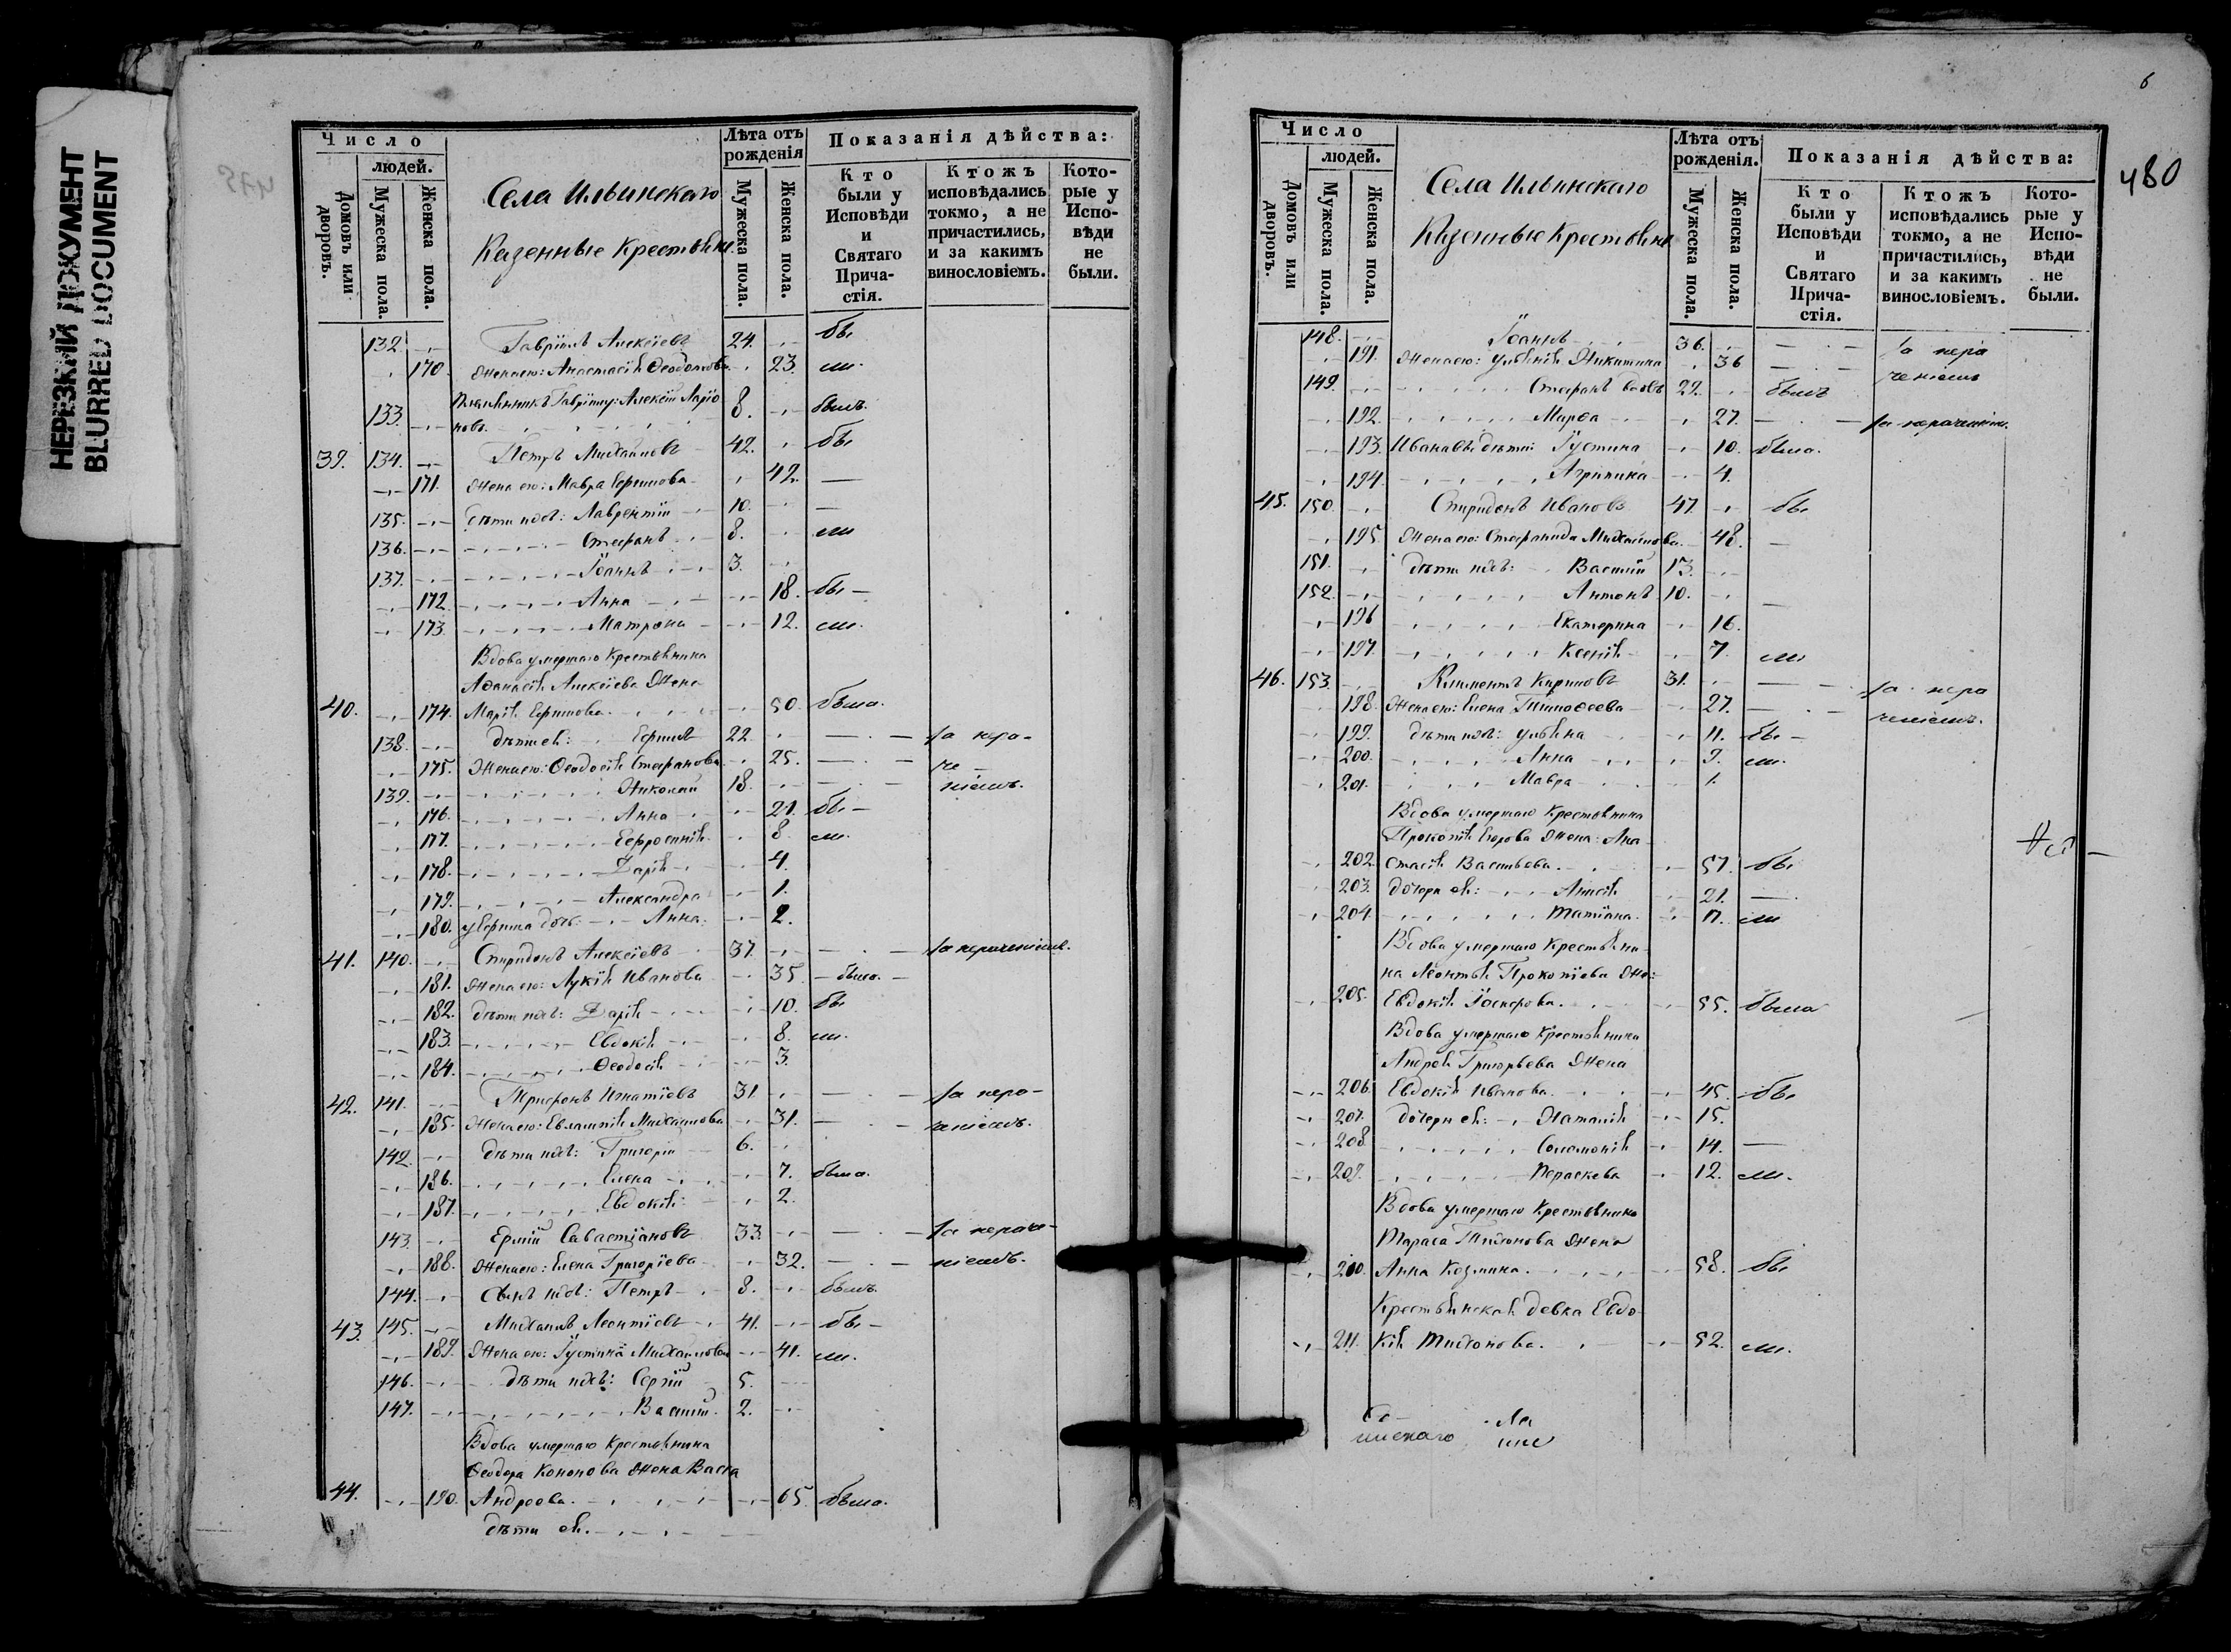 НЕРЕЗКИЙ ДОКУМЕНТ
BLURRED DOCUMENT
Число
людей.
Домовъ или дворовъ.
Мужеска пола.
Женска пола.
Села Ильинскаго
Казенные Крестьяне
Лѣта отъ рожденія
Мужеска пола.
Женска пола.
Показанія дѣйства:
Кто были у Исповѣди и Святаго Прича-стія.
Ктожъ исповѣдались токмо, а не причастились, и за какимъ винословіемъ.
Кото-рые у Испо-вѣди не были.
132. Гавріилъ Алексѣевъ 24. бы
170. Жена его: Анастасія Ѳеодотова 23. ли.
Племянникъ Гавріилу: Алексѣй Ларіо
133. новъ 8. былъ.
39. 134. Петръ Михайловъ 42. бы
171. Жена его: Мавра Ефимова 42. —
135. дѣти ихъ: Лаврентій 10. —
136. Стефанъ 8. ли
137. Іоаннъ 3.
172. Анна 18. бы —
173. Матрона 12. ли.
Вдова умершаго Крестьянина
Аѳанасія Алексѣева Жена
40. 174. Марія Ефимова 50. была.
138. дѣти ея: Ефимъ 22. — за нера-
175. Жена его: Ѳеодосія Стефанова 25. — че-
139. Николай 18. — ніемъ.
176. Анна 21. бы —
177. Евфросинія 8. ли.
178. Дарія 4.
179. Александра 1.
180. у Ефима дочь: Анна 2.
41. 140. Спиридонъ Алексѣевъ 37. — за нераченіемъ.
181. Жена его: Лукія Иванова 35. — была. —
182. дѣти ихъ: Дарія 10. бы
183. Евдокія 8. ли.
184. Ѳеодосія 3.
42. 141. Трифонъ Игнатіевъ 31. — за нера-
185. Жена его: Евлампія Михайлова 31. — ченіемъ.
142. дѣти ихъ: Григорій 6.
186. Елена 7. была.
187. Евдокія 2.
143. Ермій Савастіановъ 33. — за нераче-
188. Жена его: Елена Григоріева 32. — ніемъ.
144. Сынъ ихъ: Петръ 8. былъ.
43. 145. Михаилъ Леонтіевъ 41. бы —
189. Жена его: Іустина Михайлова 41. ли.
146. дѣти ихъ: Сергій 5.
147. Василій 2.
Вдова умершаго Крестьянина
Ѳеодора Кононова Жена Васса
44. 190. Андреева 65. была.
дѣти ея.
6
480
Число
людей.
Домовъ или дворовъ.
Мужеска пола.
Женска пола.
Села Ильинскаго
Казенные Крестьяне
Лѣта отъ рожденія.
Мужеска пола.
Женска пола.
Показанія дѣйства:
Кто были у Исповѣди и Святаго Прича-стія.
Ктожъ исповѣдались токмо, а не причастились, и за какимъ винословіемъ.
Кото-рые у Испо-вѣди не были.
148. Іоаннъ 36. — за нера
191. Жена его: Уліянія Никитина 36 — ченіемъ
149. Стефанъ 22. былъ
192. Марѳа 27. — за нераченіемъ.
193. Ивановы дѣти: Іустина 10. была.
194. Агрипина 4.
45. 150. Спиридонъ Ивановъ 47. бы
195. Жена его: Стефанида Михайлова 48. —
151. дѣти ихъ: Василій 13.
152. Антонъ 10. —
196 Екатерина 16.
197. Ксенія 7. ли
46. 153. Климентъ Кириловъ 31. — за нера
198. Жена его: Елена Тимоѳеева 27. — ченіемъ.
199. дѣти ихъ: Уліяна 11. бы —
200. Анна 9. ли.
201. Мавра 1.
Вдова умершаго Крестьянина
Прокопія Егорова Жена: Ана
202. стасія Васильева. 57. бы
203. дочери ея: Анисія 21. —
204. Татіана. 17. ли
Вдова умершаго Крестьяни-
на Леонтія Прокопіева Же:
205. Евдокія 55. была
Вдова умершаго Крестьянина
Андрея Григорьева Жена
206. Евдокія Иванова. 45. бы
207. дочери ея: Наталія 15.
208 Соломонія 14. —
209. Параскева 12. ли.
Вдова умершаго Крестьянина
Тараса Тихонова Жена
210. Анна Козмина. 58. бы
Крестьянская девка Евдо-
211. кія Тихонова. 52. ли.